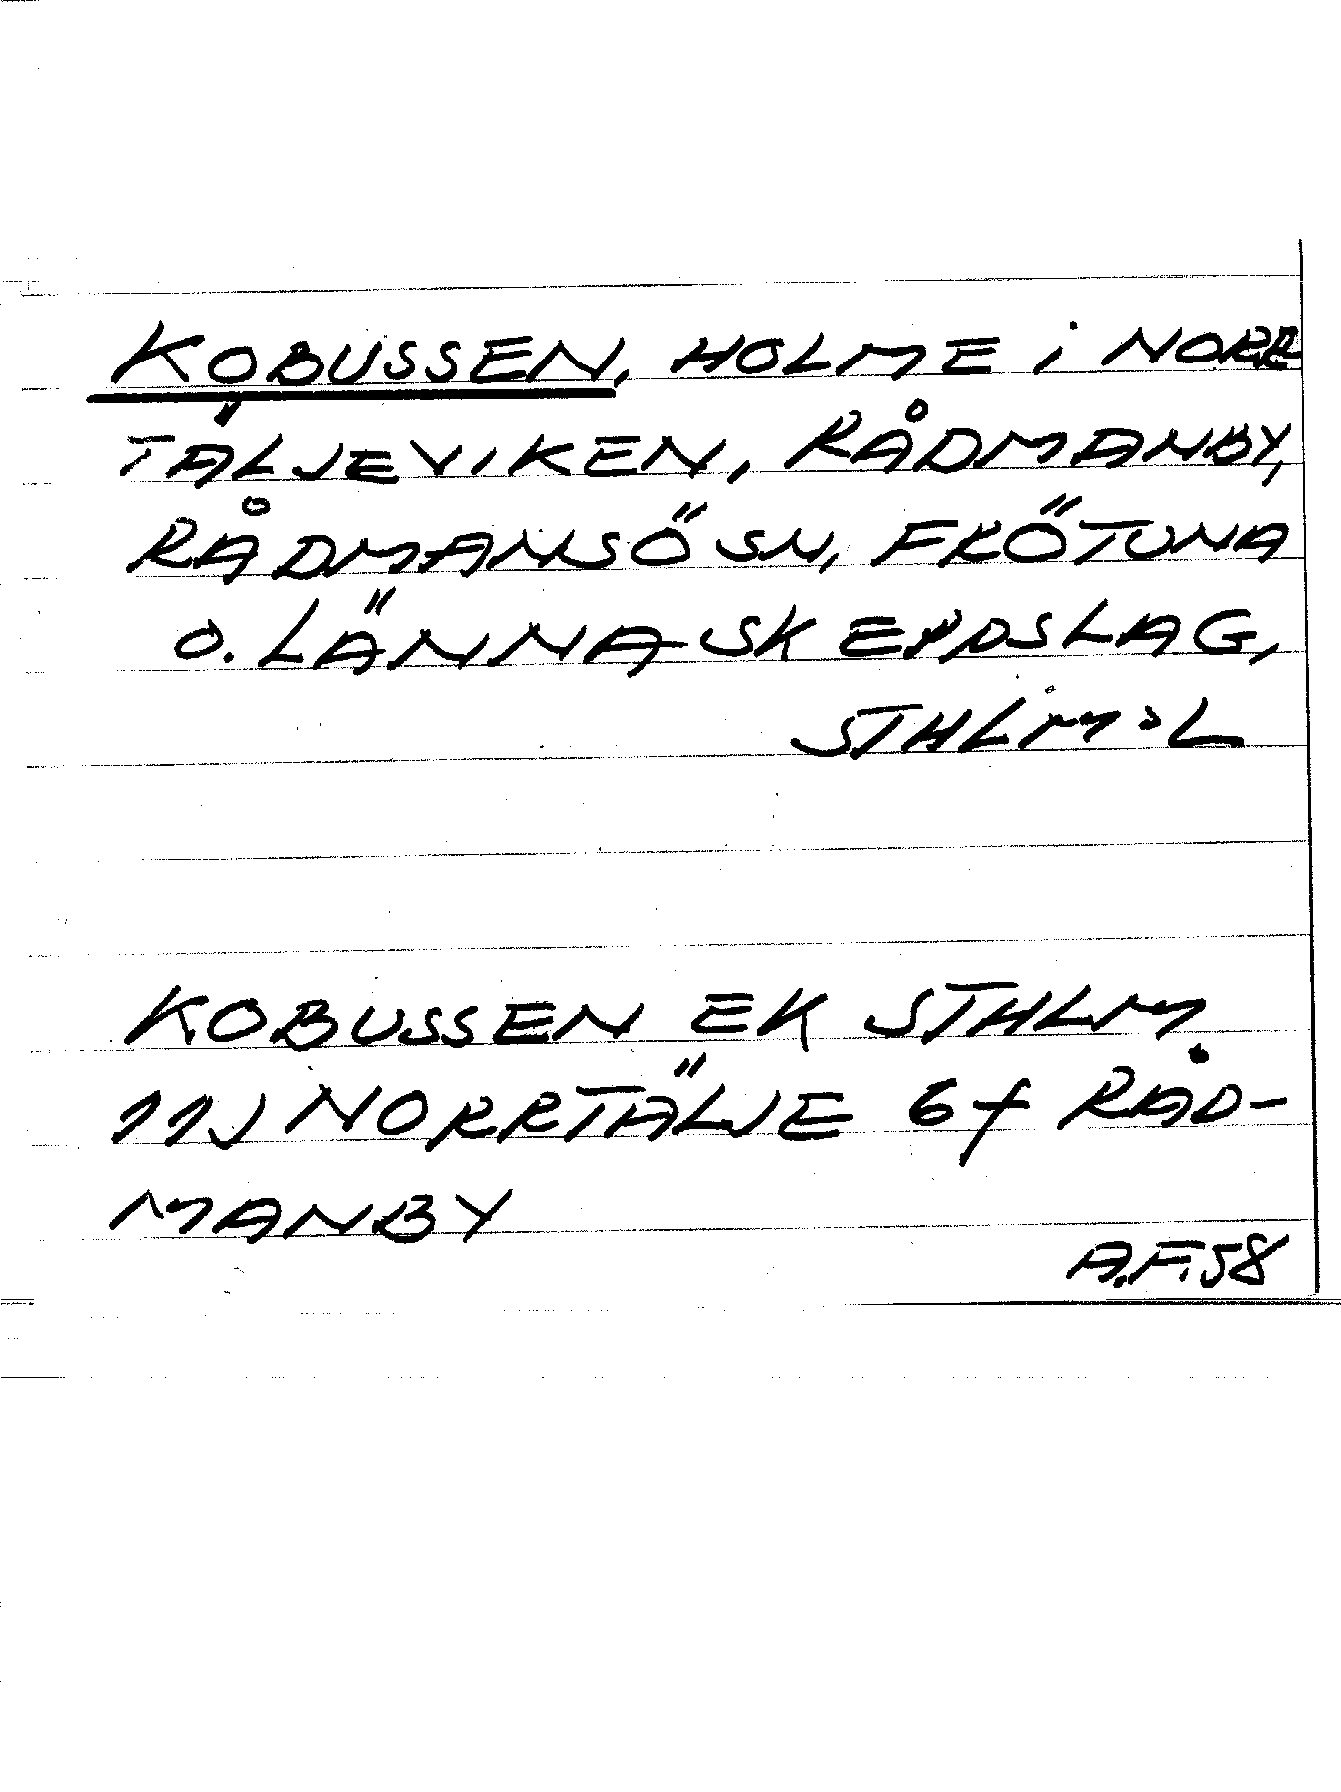 KOBUSSEN, HOLME i NORR
TÄLJEVIKEN, RÅDMANBY,
RÅDMANSÖ SN, FRÖTUNA
O. LÄNNA SKEPPSLAG,
STHLM:L
KOBUSSEN EK STHLM
11J NORRTÄLJE 6f RÅD-
MANBY
A.F.58